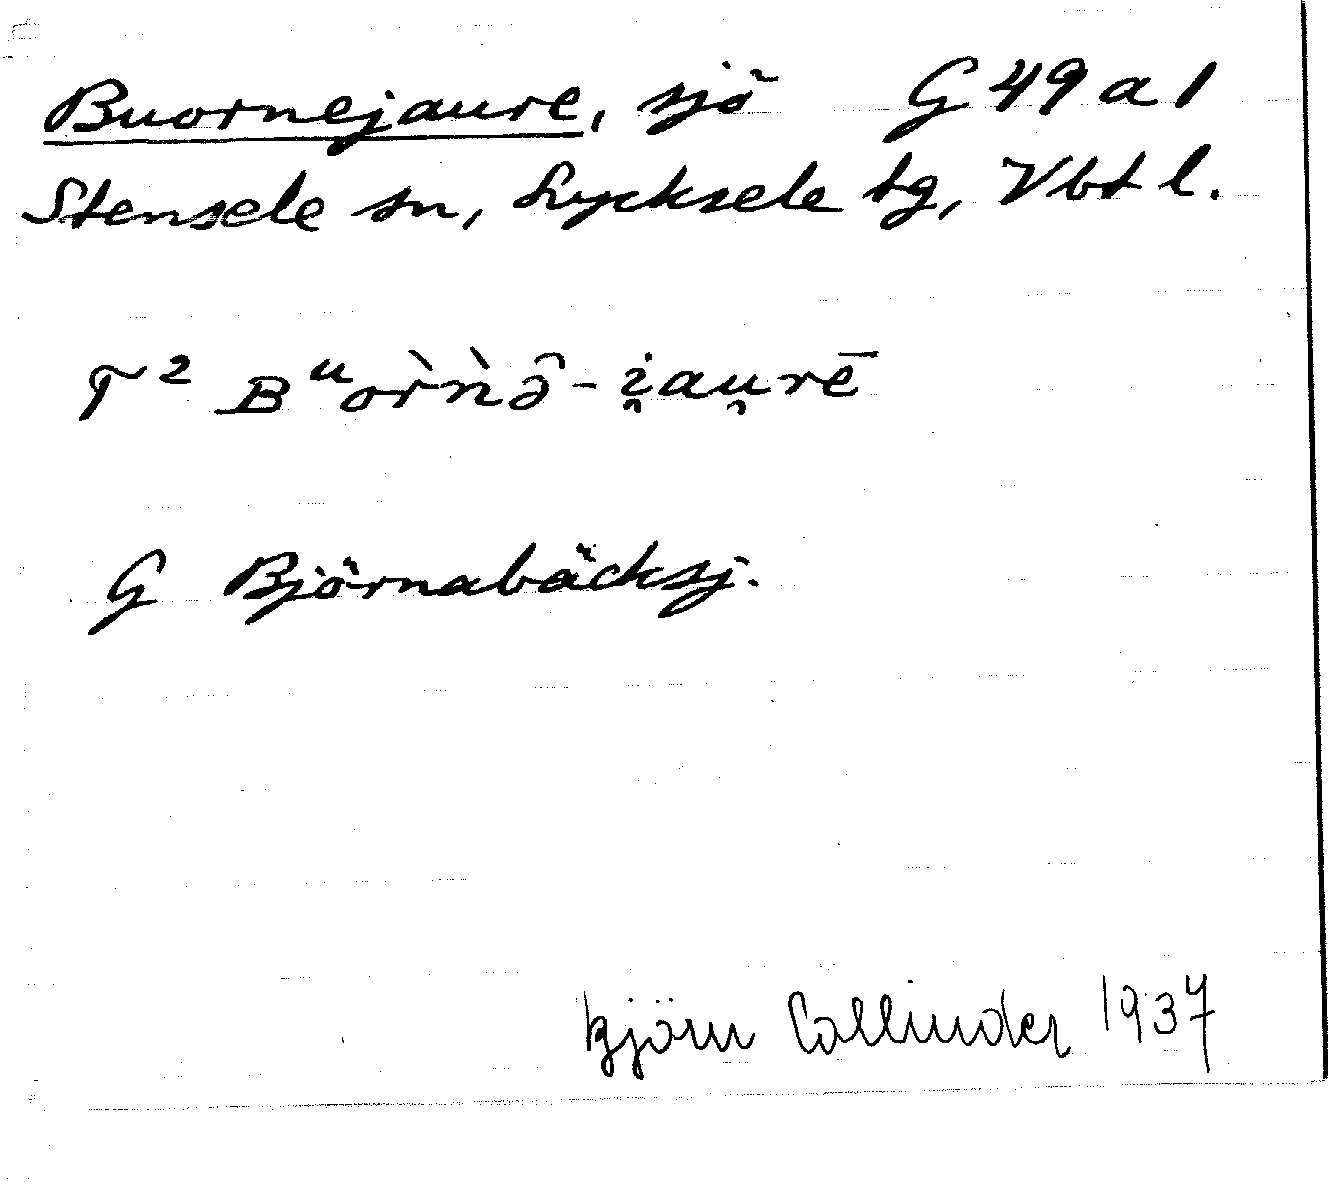 Buornejaure, sjö G 49 a 1
Stensele sn, Lycksele tg, Vbt l.
T² Bᵘor̀ǹə̑-i̯au̯rē
G Björnabäcksj.
Björn Collinder 1937